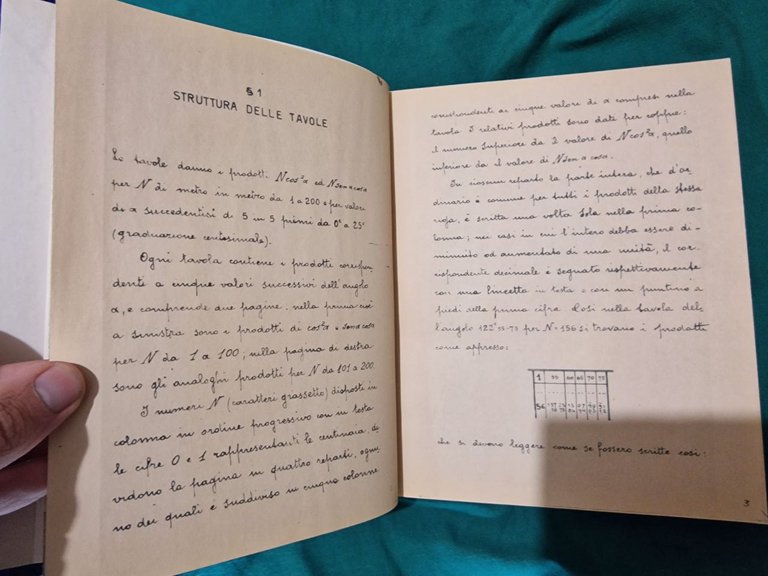 § 1
STRUTTURA DELLE TAVOLE
Le tavole danno i prodotti N cos²α ed N sen α cos α
per N di metro in metro da 1 a 200 e per valori
di α succedentisi di 5 in 5 primi da 0ᶜ a 25ᶜ
(graduazione centesimale).
Ogni tavola contiene i prodotti corrispon
denti a cinque valori successivi dell'angolo
α, e comprende due pagine: nella prima cioè
a sinistra sono i prodotti di cos²α e sen α cos α
per N da 1 a 100; nella pagina di destra
sono gli analoghi prodotti per N da 101 a 200.
I numeri N (caratteri grassetto) disposti in
colonna in ordine progressivo con in testa
le cifre 0 e 1 rappresentanti le centinaia, di
vidono la pagina in quattro reparti, ognu
no dei quali è suddiviso in cinque colonne
corrispondenti ai cinque valore di α compresi nella
tavola I relativi prodotti sono date per coppie:
il numero superiore da il valore di N cos²α, quello
inferiore da il valore di N sen α cos α.
In ciascun reparto la parte intera, che d'or
dinario è comune per tutti i prodotti della stessa
riga, è scritta una volta sola nella prima co
lonna; nei casi in cui l'intero debba essere di
minuito od aumentato di una unità, il cor
rispondente decimale è segnato rispettivamente
con una lineetta in testa o con un puntino a
piedi della prima cifra. Così nella tavola del
l'angolo 122ᶜ 55-75 per N=156 si trovano i prodotti
come appresso:
1 55 60 65 70 75
56
che si devono leggere come se fossero scritte così:
3